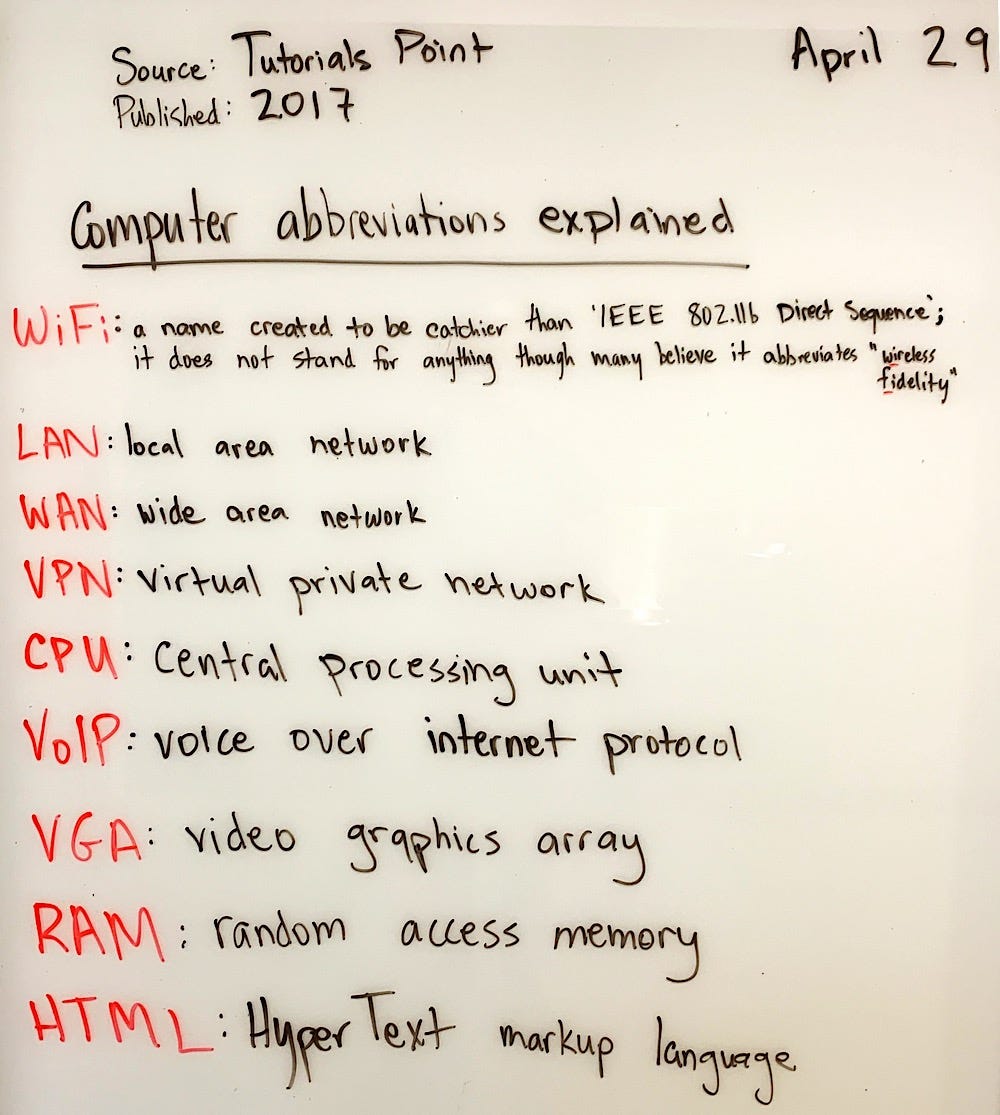 Source: Tutorials Point
April 29
Published: 2017
Computer abbreviations explained
WiFi: a name created to be catchier than 'IEEE 802.11b Direct Sequence';
it does not stand for anything though many believe it abbreviates "wireless
fidelity"
LAN: local area network
WAN: wide area network
VPN: virtual private network
CPU: central processing unit
VoIP: voice over internet protocol
VGA: video graphics array
RAM: random access memory
HTML: HyperText markup language